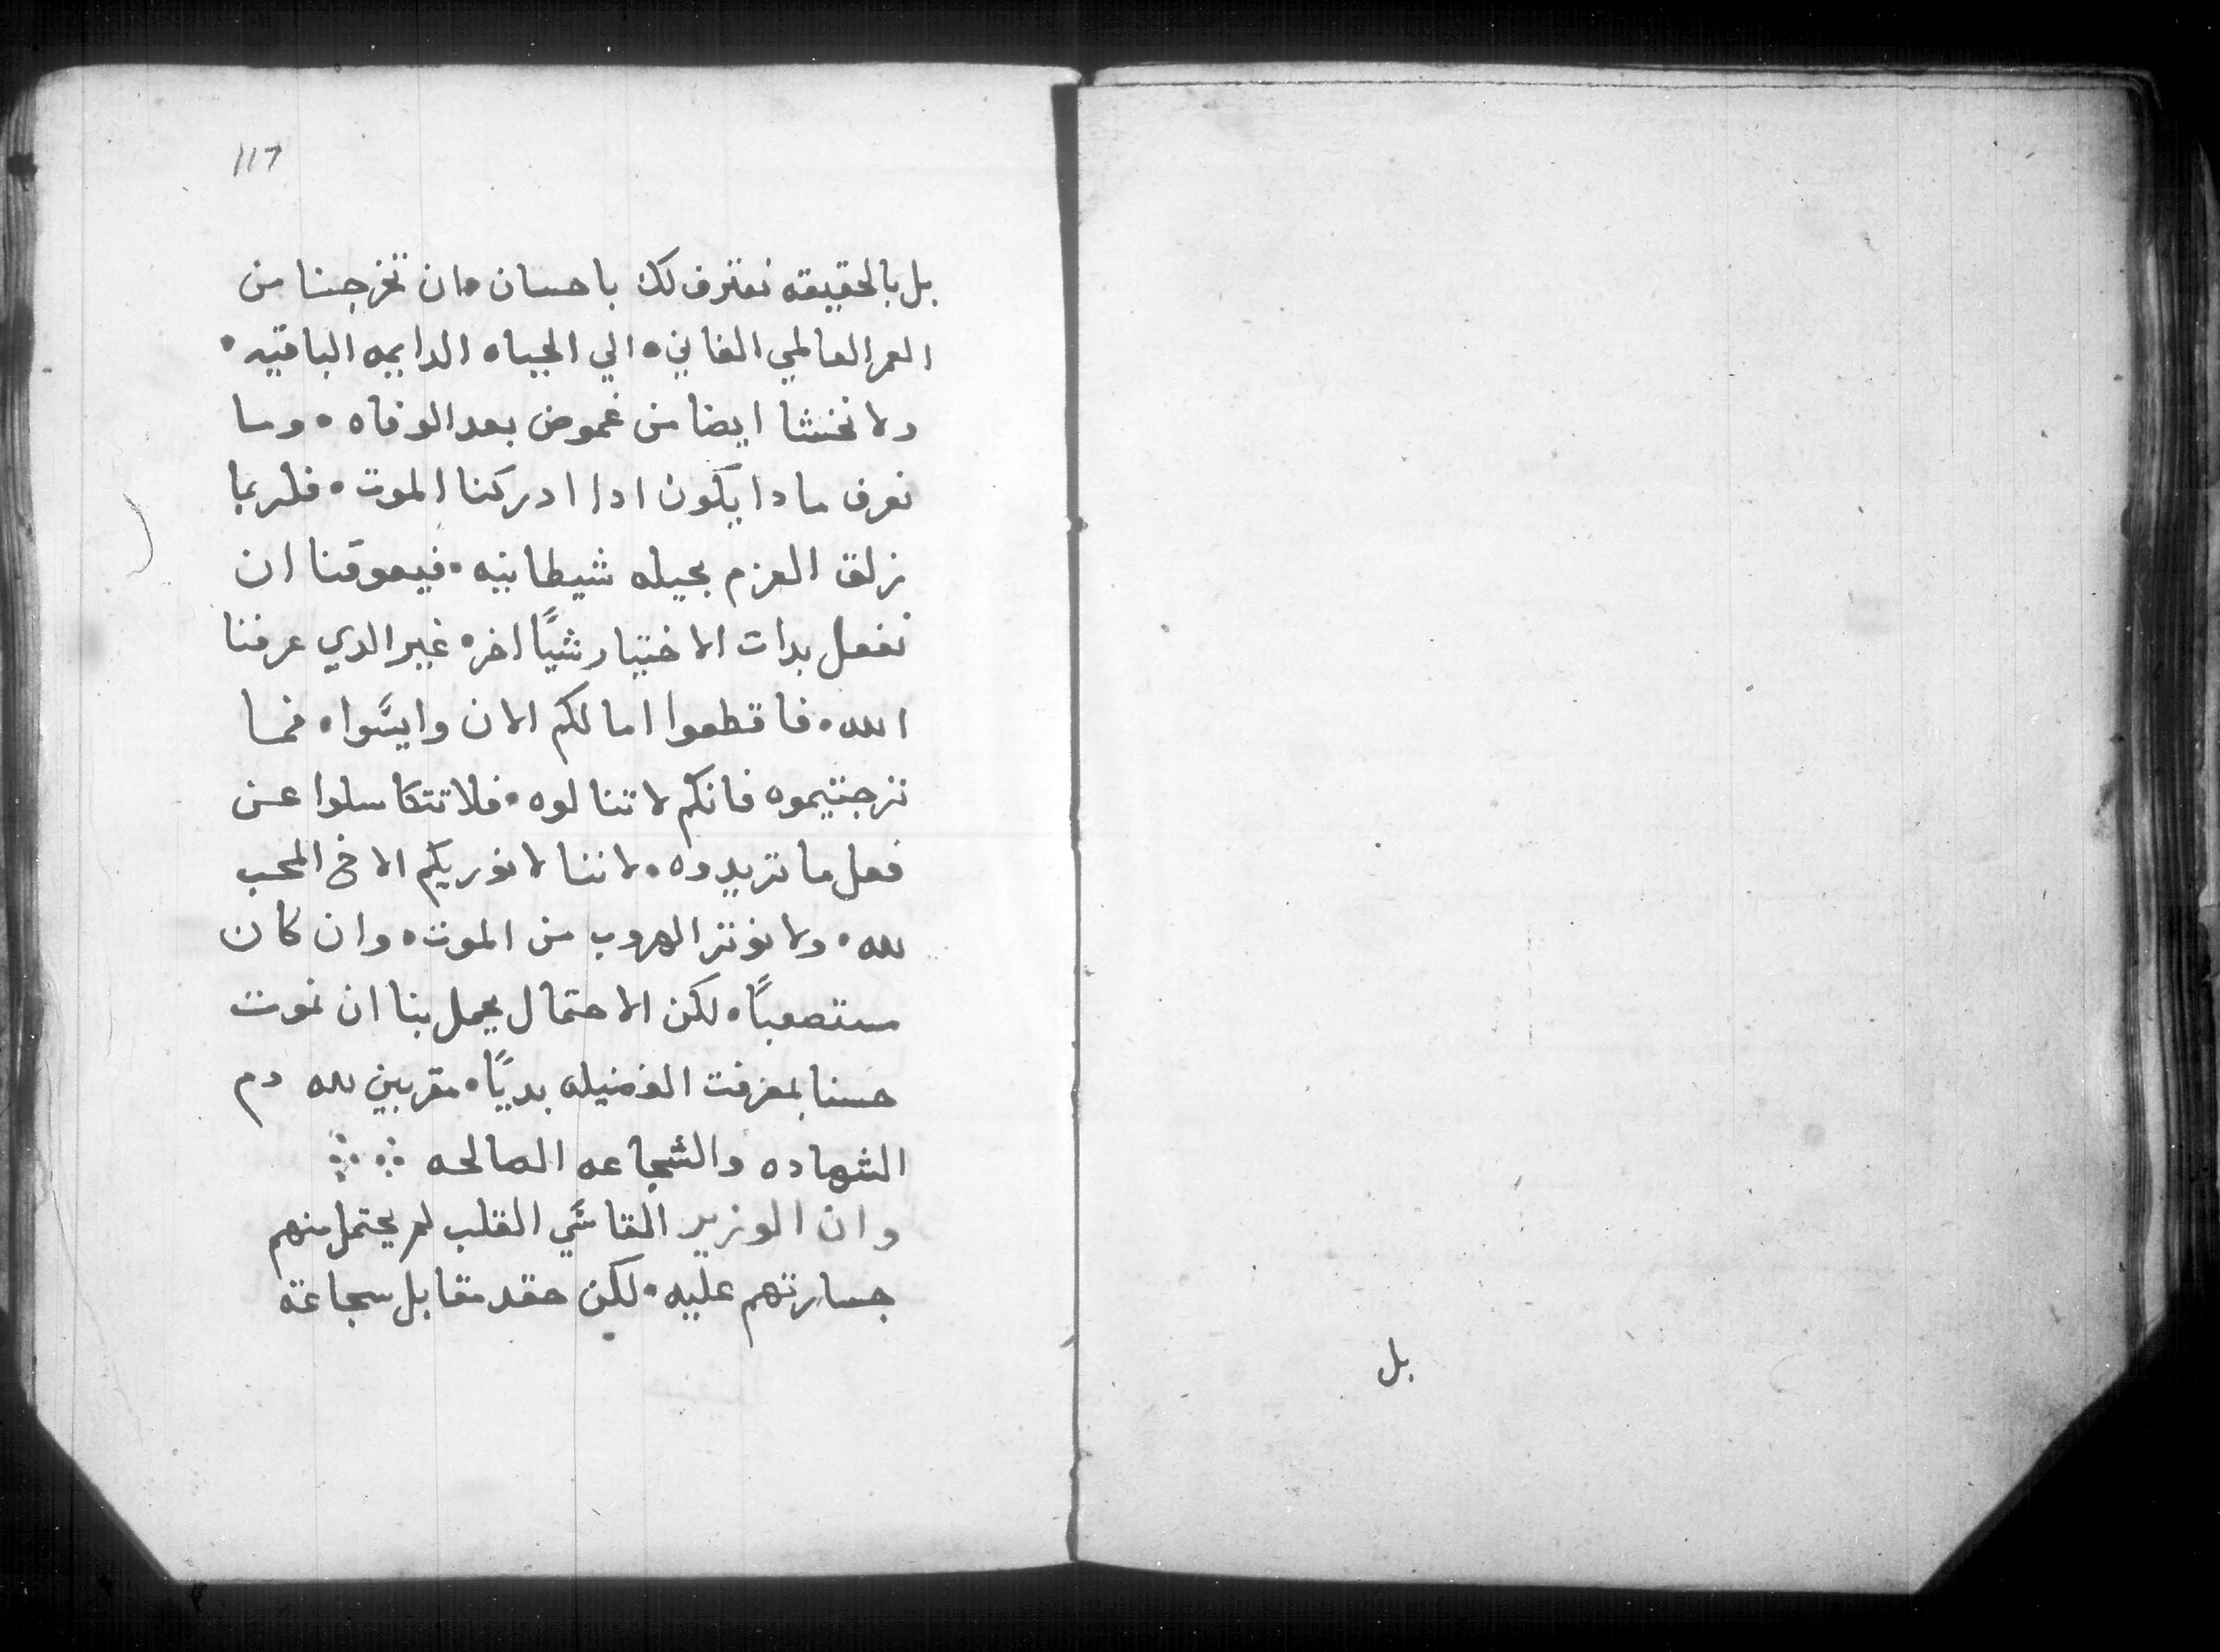 بل
117
بل بالحقيقه نعترف لك باحسان • ان تخرجنا من
العمر العالمي الفاني • الي الحياه الدايمه الباقيه •
ولا نخشا ايضا من غموض بعد الوفاه • وما
نعرف مادا يكون ادا ادركنا الموت • فلربما
زلق العزم بحيله شيطانيه • فيعوقنا ان
نفعل بدات الاختيار شياً اخر • غير الدي عرفنا
الله • فاقطعوا امالكم الان وايسَوا • فما
ترجيتموه فانكم لا تنالوه • فلا تتكاسلوا عن
فعل ما تريدوه • لاننا لا نوريكم الا فرح المحب
لله • ولا نوتر الهروب من الموت • وان كان
مستصعباً • لكن الاحتمال يجمل بنا ان نموت
حسنا بمعرفت الفضيله بدياً • مقربين لله دم
الشهاده والشجاعه الصالحه
وان الوزير القاسَي القلب لم يحتمل منهم
جسارتهم عليه • لكن حقد مقابل سجاعة